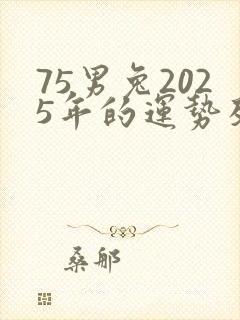 75男兔202
5年的運勢
桑邮